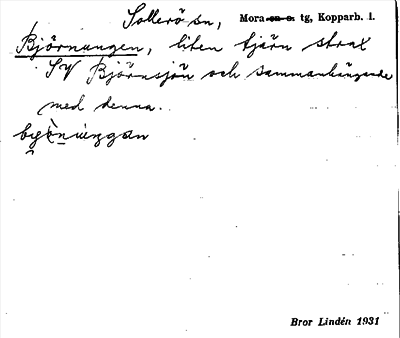 Sollerö sn, Mora sn o. tg, Kopparb. l.
Björnungen, liten tjärn strax
SV Björnsjön och sammanhängande
med denna.
Bror Lindén 1931